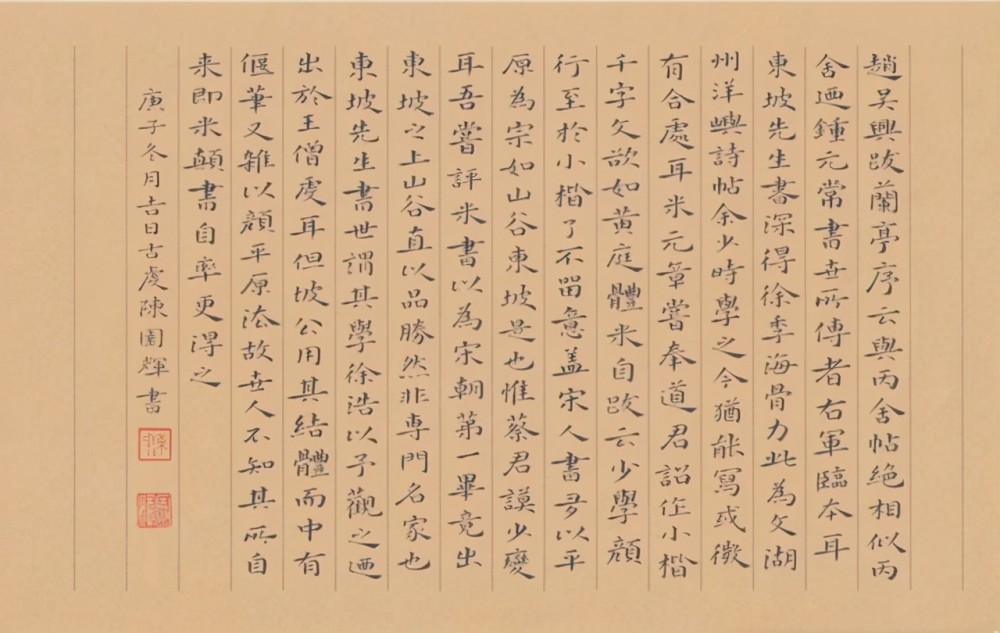 趙吴興跋蘭亭序云與丙舍帖絶相似丙
舍迺鍾元常書世所傳者右軍臨本耳
東坡先生書深得徐季海骨力此為文湖
州洋嶼詩帖余少時學之今猶能寫或微
有合處耳米元章嘗奉道君詔作小楷
千字文欲如黄庭體米自跋云少學顔
行至於小楷了不留意盖宋人書多以平
原為宗如山谷東坡是也惟蔡君謨少變
耳吾嘗評米書以為宋朝第一畢竟出
東坡之上山谷直以品勝然非専門名家也
東坡先生書世謂其學徐浩以予觀之迺
出於王僧虔耳但坡公用其結體而中有
偃筆又雜以顔平原法故世人不知其所自
来即米顛書自率更得之
庚子冬月吉日古虞陳園輝書